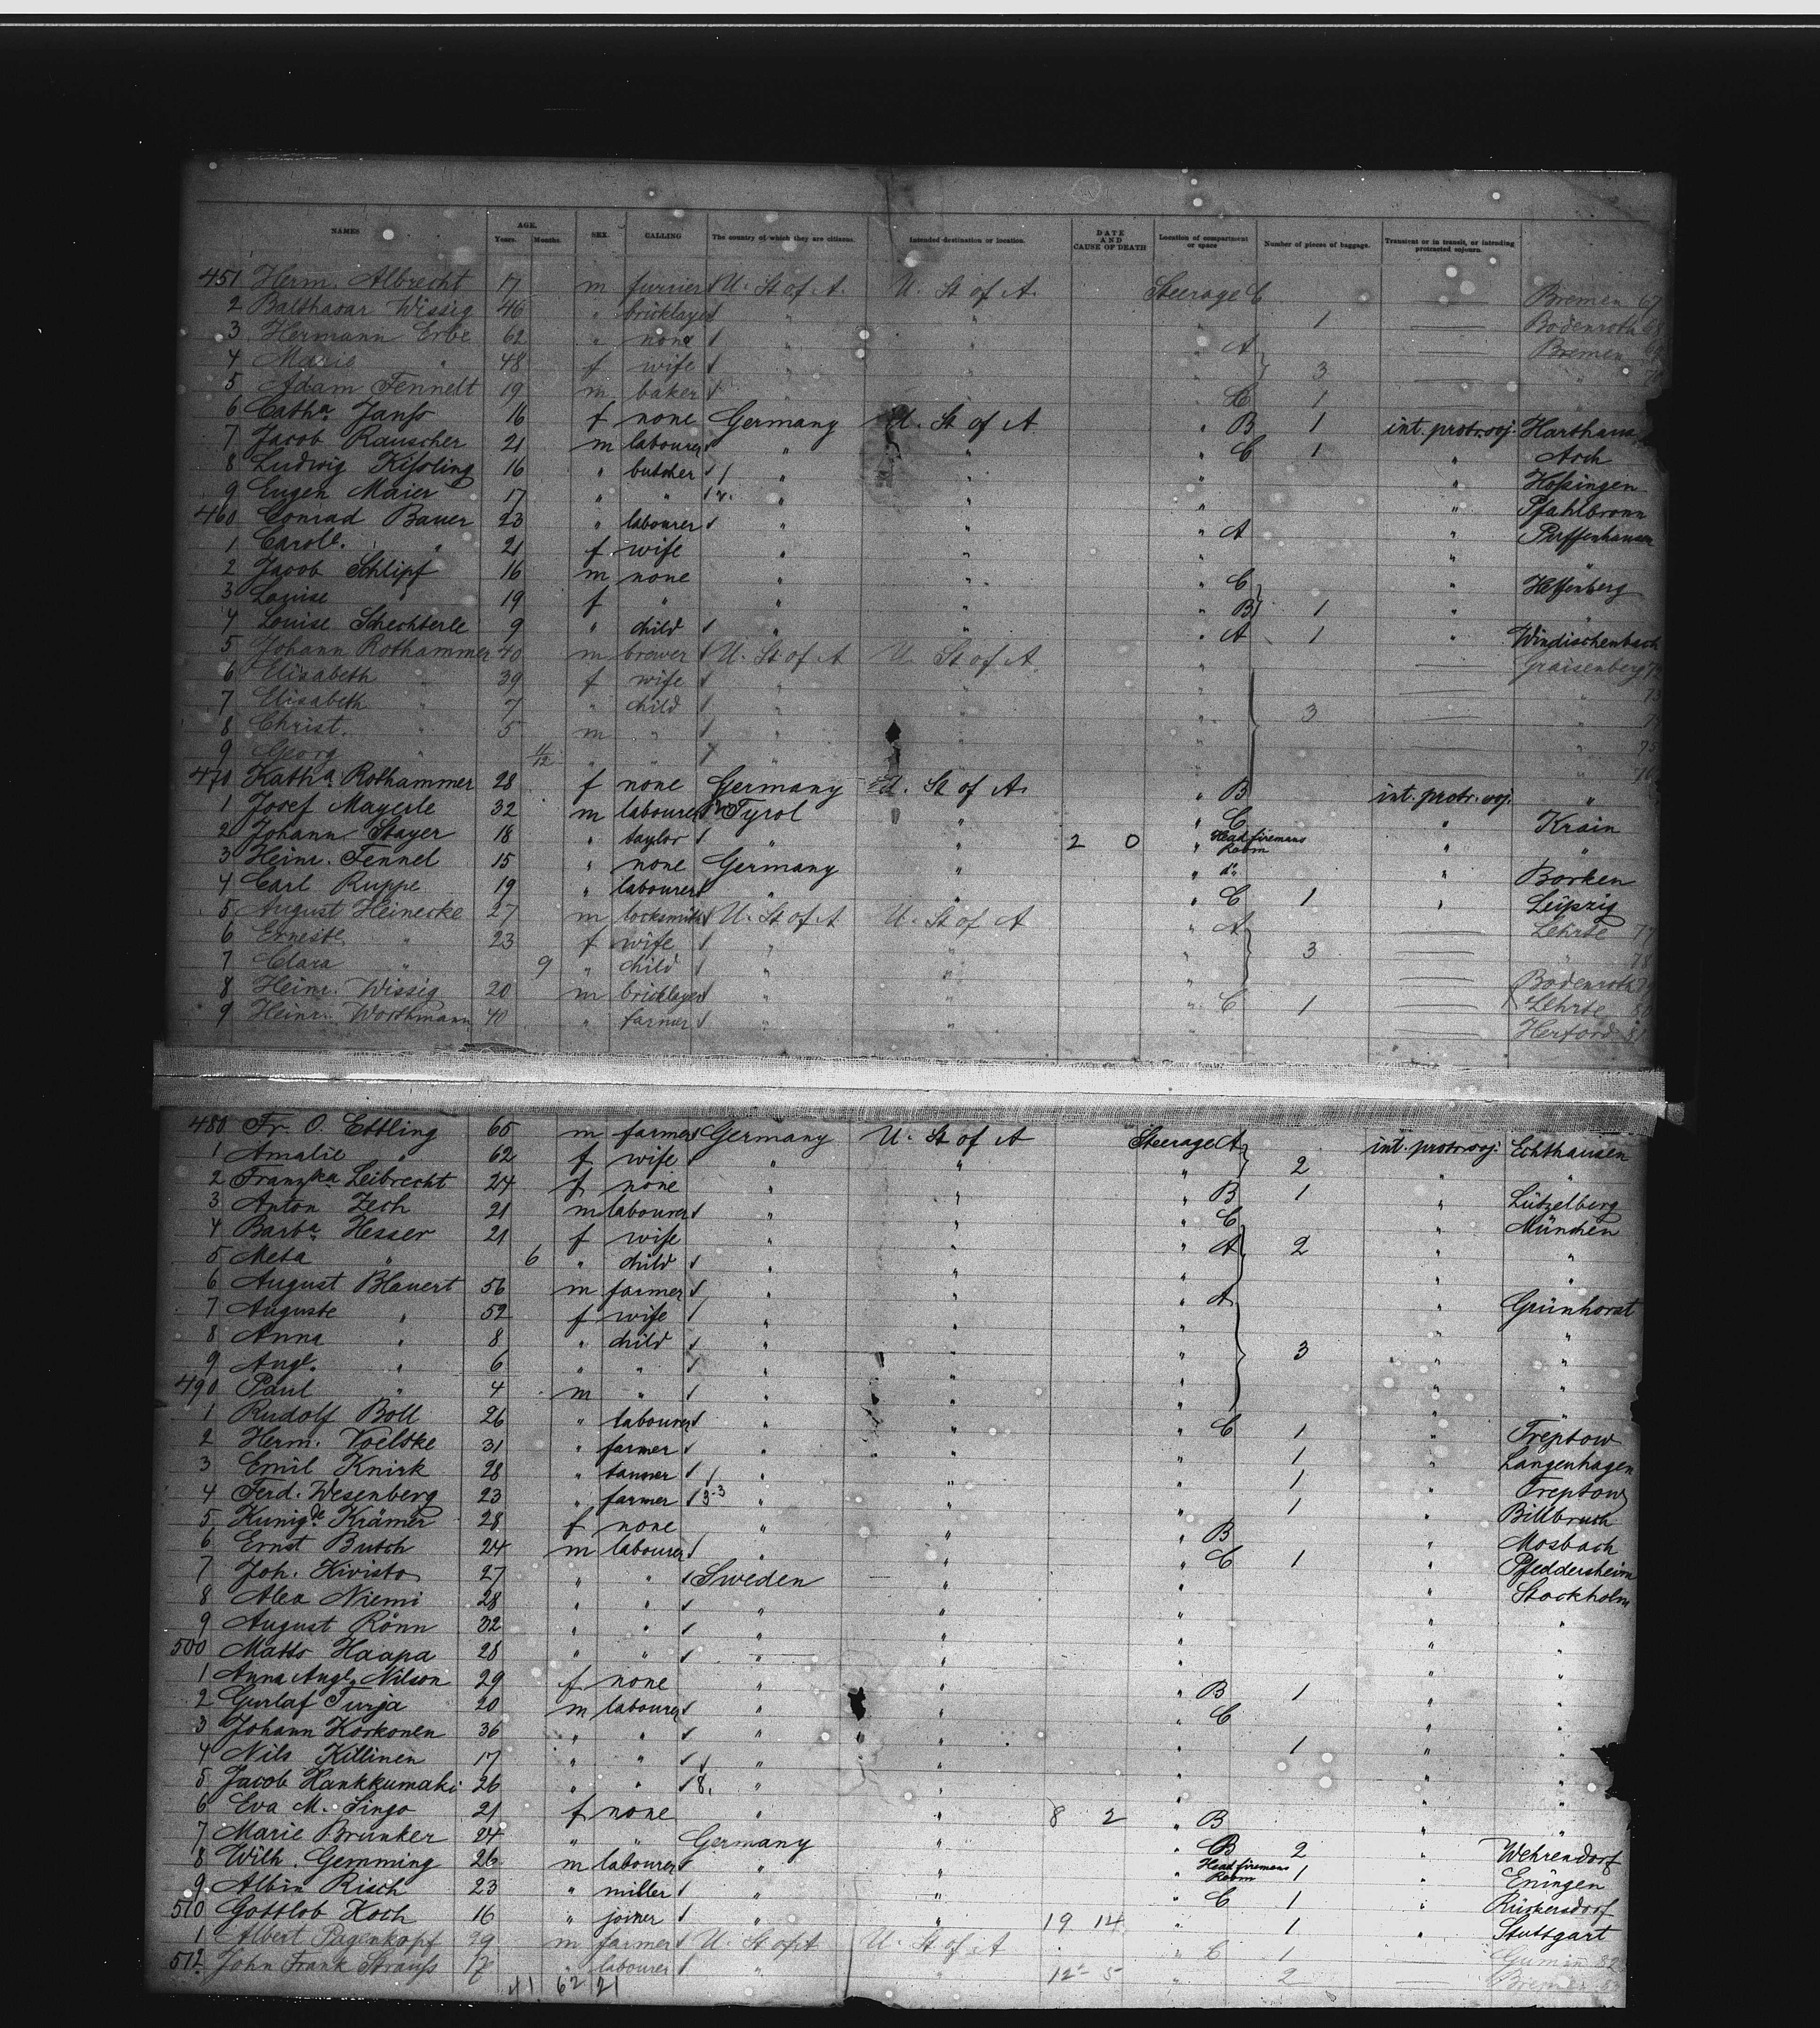 NAMES AGE. Years. Months. SEX. CALLING The country of which they are citizens. Intended destination or location. DATE AND CAUSE OF DEATH Location of compartment or space Number of pieces of baggage. Transient or in transit, or intending protracted sojourn.
451 Herm. Albrecht 17 m furrier U. St of A. U. St of A. Steerage C Bremen 67
2 Balthasar Wissig 46 " bricklayer " " " 1 Bodenroth 68
3 Hermann Erbe 62 " none " " " A Bremen 69
4 Marie " 48 f wife " " " 3 " 70
5 Adam Fennelt 19 m baker " " " C 1
6 Catha Janss 16 f none Germany U. St of A " B 1 int. protr. soj. Harthaus
7 Jacob Rauscher 21 m labourer " " " C 1 " Asch
8 Ludwig Kissling 16 " butcher " " " " Hossingen
9 Eugen Maier 17 " " " " " " Pfahlbronn
460 Conrad Bauer 23 " labourer " " " A "
1 Carole. " 21 f wife " " " " "
2 Jacob Schlipf 16 m none " " " C " Helfenberg
3 Louise " 19 f " " " " B 1 " "
4 Louise Schechterle 9 " child " " " A 1 " Windischenbach
5 Johann Rothammer 40 m brewer U. St of A U. St of A " Graisenberg 72
6 Elisabeth " 39 f wife " " " " 73
7 Elisabeth " 7 " child " " " 3 " 74
8 Christ. " 5 m " " " " " 75
9 Georg " 11/12 " " " " " " 76
470 Katha Rothammer 28 f none Germany U. St of A. " B int. protr. soj. "
1 Josef Mayerle 32 m labourer Tyrol " " C " Krain
2 Johann Stayer 18 " taylor " " 2 0 " Head firemans Room " "
3 Heinr. Fennel 15 " none Germany " " do " Borken
4 Carl Ruppe 19 " labourer " " " C 1 " Leipzig
5 August Heinecke 27 m locksmith U. St of A U. St of A " A Lehrte 77
6 Erneste " 23 f wife " " " 3 " 78
7 Clara " 9 " child " " " Bodenroth 79
8 Heinr. Wissig 20 m bricklayer " " " C 1 Lehrte 80
9 Heinr. Worthmann 40 " farmer " " " Herford 81
480 Fr. O. Ettling 65 m farmer Germany U. St of A Steerage A int. protr. soj. Echthausen
1 Amalie " 62 f wife " " " 2 " "
2 Franzka Leibrecht 24 f none " " " B 1 " Lützelberg
3 Anton Zech 21 m labourer " " " C " München
4 Barba Hesser 21 f wife " " " A 2 " "
5 Meta " 6 " child " " " " "
6 August Blauert 56 m farmer " " " A " Grünhorst
7 Auguste " 52 f wife " " " " "
8 Anna " 8 " child " " " 3 " "
9 Augl. " 6 " " " " " " "
490 Paul " 4 m " " " " " "
1 Rudolf Boll 26 " labourer " " " C 1 " Treptow
2 Herm. Voelske 31 " farmer " " " 1 " Langenhagen
3 Emil Knirk 28 " tanner " " " 1 " Treptow
4 Ferd. Wesenberg 23 " farmer 3-3 " " " 1 " Billbruch
5 Kunigde Krämer 28 f none " " " B " Mosbach
6 Ernst Butsch 24 m labourer " " " C 1 " Pfeddersheim
7 Joh. Kivisto 27 " " Sweden " " " Stockholm
8 Alex Niemi 28 " " " " " " "
9 August Rönn 32 " " " " " " "
500 Matts Haapa 28 " " " " " "
1 Anna Augl. Nilson 29 f none " " " B 1 " "
2 Gustaf Turja 20 m labourer " " " C " "
3 Johann Korkonen 36 " " " " " 1 " "
4 Nils Killinen 17 " " " " " " "
5 Jacob Hankkumaki 26 " " 8. " " " " "
6 Eva M. Singo 21 f none " " 8 2 " B " "
7 Marie Brunker 24 " " Germany " " B 2 " Wehrendorf
8 Wilh. Gemming 26 m labourer " " " Head firemans Room 1 " Eningen
9 Albin Risch 23 " miller " " " C 1 " Rückersdorf
510 Gottlob Koch 16 " joiner " " 19 14 " 1 " Stuttgart
1 Albert Pagenkopf 29 m farmer U. St of A U. St of A " C 1 82
512 John Frank Strauss 17 " labourer " " 12 5 " 2 Bremen 83
41 62 21